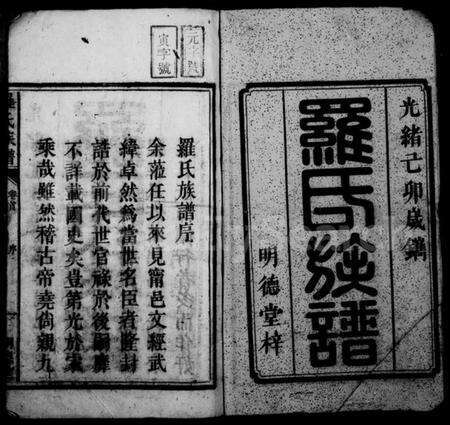 光緒己卯歲鐫
羅氏族譜
明德堂梓
元 號
寅字號
羅氏族譜序
余蒞任以來見甯邑文經武
緯卓然為當世名臣者隆封
誥於前代世官祿於後嗣靡
不詳載國史矣豈第光於家
乘哉雖然稽古帝堯尚親九
羅氏族譜
序